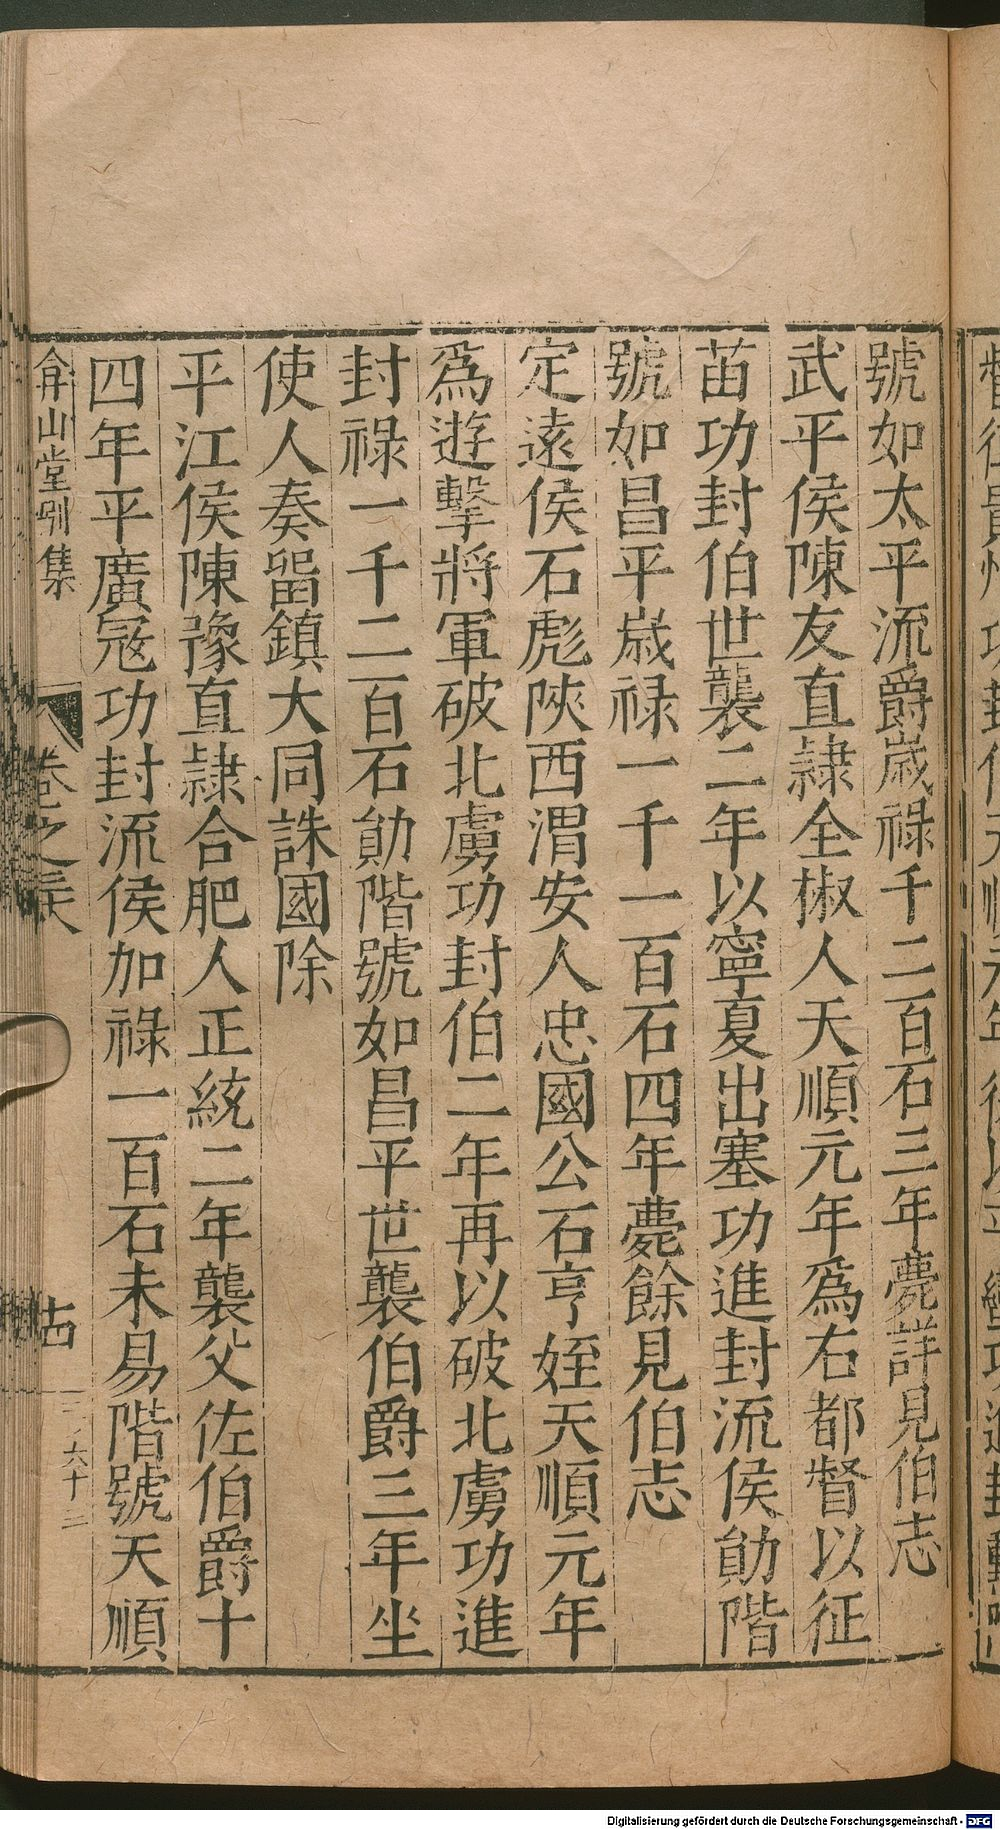 號如太平流爵歲祿千二百石三年薨詳見伯志
武平侯陳友直隷全椒人天順元年爲右都督以征
苗功封伯世襲二年以寧夏出塞功進封流侯勛階
號如昌平歲祿一千一百石四年薨餘見伯志
定遠侯石彪陝西渭安人忠國公石亨姪天順元年
爲遊擊將軍破北虜功封伯二年再以破北虜功進
封祿一千二百石勛階號如昌平世襲伯爵三年坐
使人奏留鎮大同誅國除
平江侯陳豫直隷合肥人正統二年襲父佐伯爵十
四年平廣寇功封流侯加祿一百石未易階號天順
弇山堂別集 卷之三十八 十四
六十二
Digitalisierung gefördert durch die Deutsche Forschungsgemeinschaft - DFG